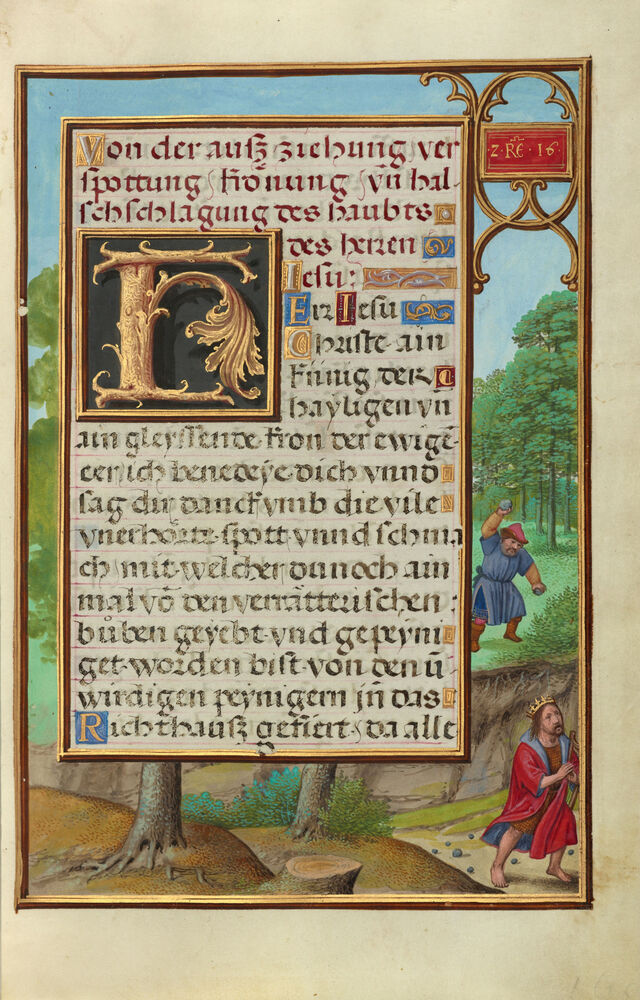 ·2·RE·16·
Von der aufz ziehung ver
spottung / krönung / vn̄ hal-
schschlagung des haubts
des herren
Iesu:
HEir Iesu
Christe ain
künig der
hayligen vn̄
ain gleyssende kron der ewigē
eer ich benedeye dich vnnd
sag dir danck vmb die vile
vnerhörte spott vnnd schma
ch / mit welcher du noch ain
mal vō den verrätterischen:
bůben geyebt vnd gepeyni
get worden bist von den ū
wirdigen peynigern jn das
Richthausz gefiert / da alle